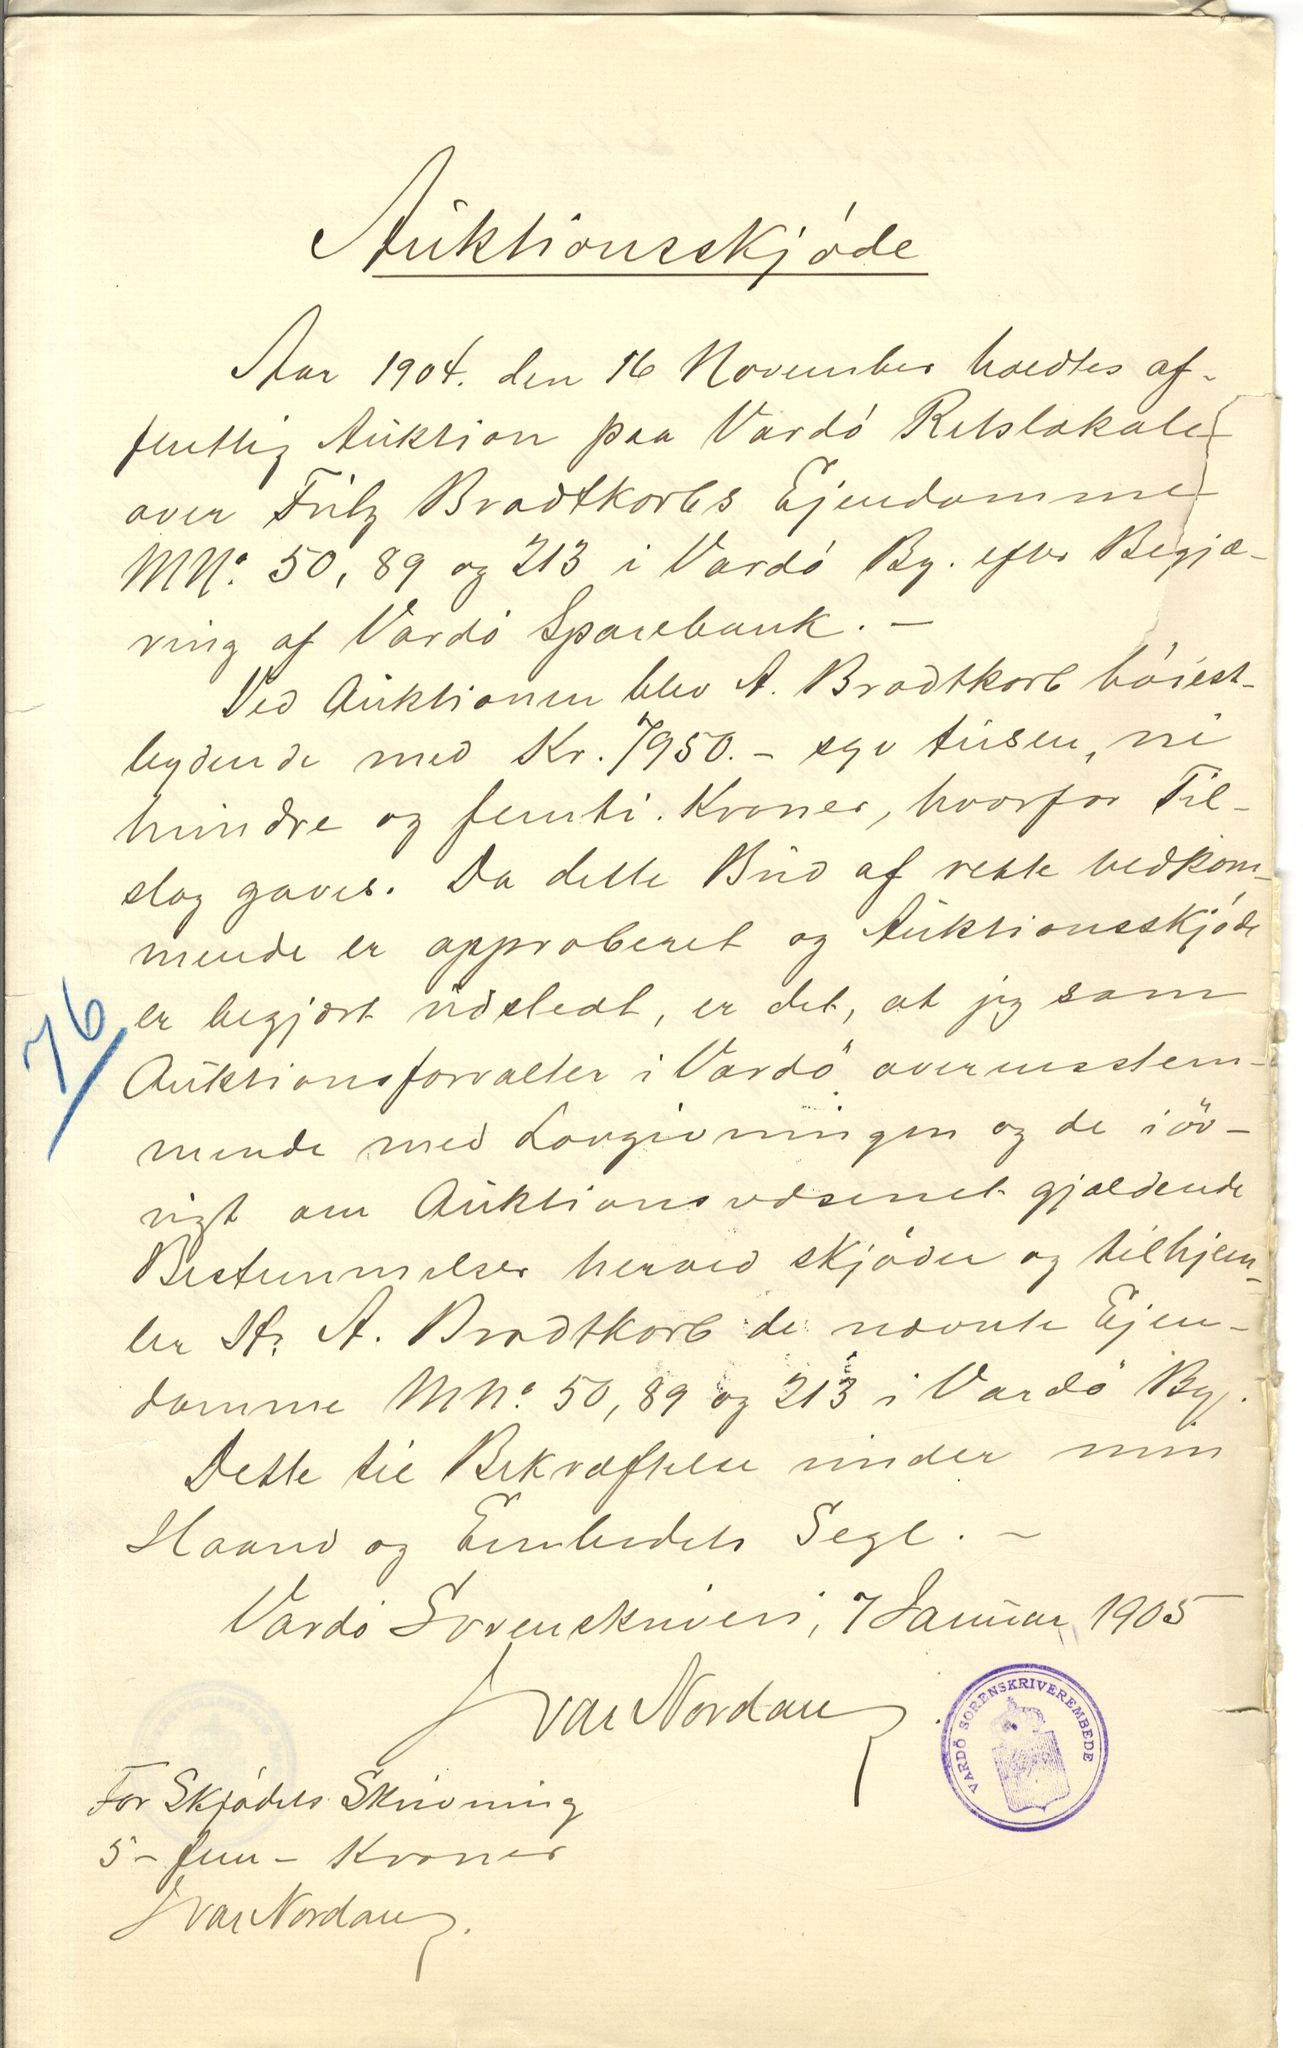 Auktionsskjøde
Aar 1904. den 16 November holdtes of-
fentlig Auktion paa Vardø Retslokale
over Fritz Brodtkorbs Ejendomme
MNo. 50, 89 og 213 i Vardø By. efter Begjæ-
ring af Vardø Sparebank. -
Ved Auktionen blev A. Brodtkorb høiest-
bydende med Kr. 7950. - syv tusen, ni
hundre og femti. Kroner, hvorfor Til-
slag gaves. Da dette Bud af rette vedkom-
mende er approberet og Auktionsskjøde
er begjært udstedt, er det, at jeg som
76
Auktionsforvalter i Vardø overensstem-
mende med Lovgivningen og de iøv-
rigt om Auktionsvæsenet gjældende
Bestemmelser herved skjøder og tilhjem-
ler Hr. A. Brodtkorb de nævnte Ejen-
domme MNo. 50, 89 og 213 i Vardø By.
Dette til Bekræftelse under min
Haand og Embedets Segl. -
Vardø Sorenskriveri, 7 Januar 1905
Ivar Nordang
VARDÖ SORENSKRIVEREMBEDE
For Skjødets Skrivning
5 - fem - Kroner
Ivar Nordang.